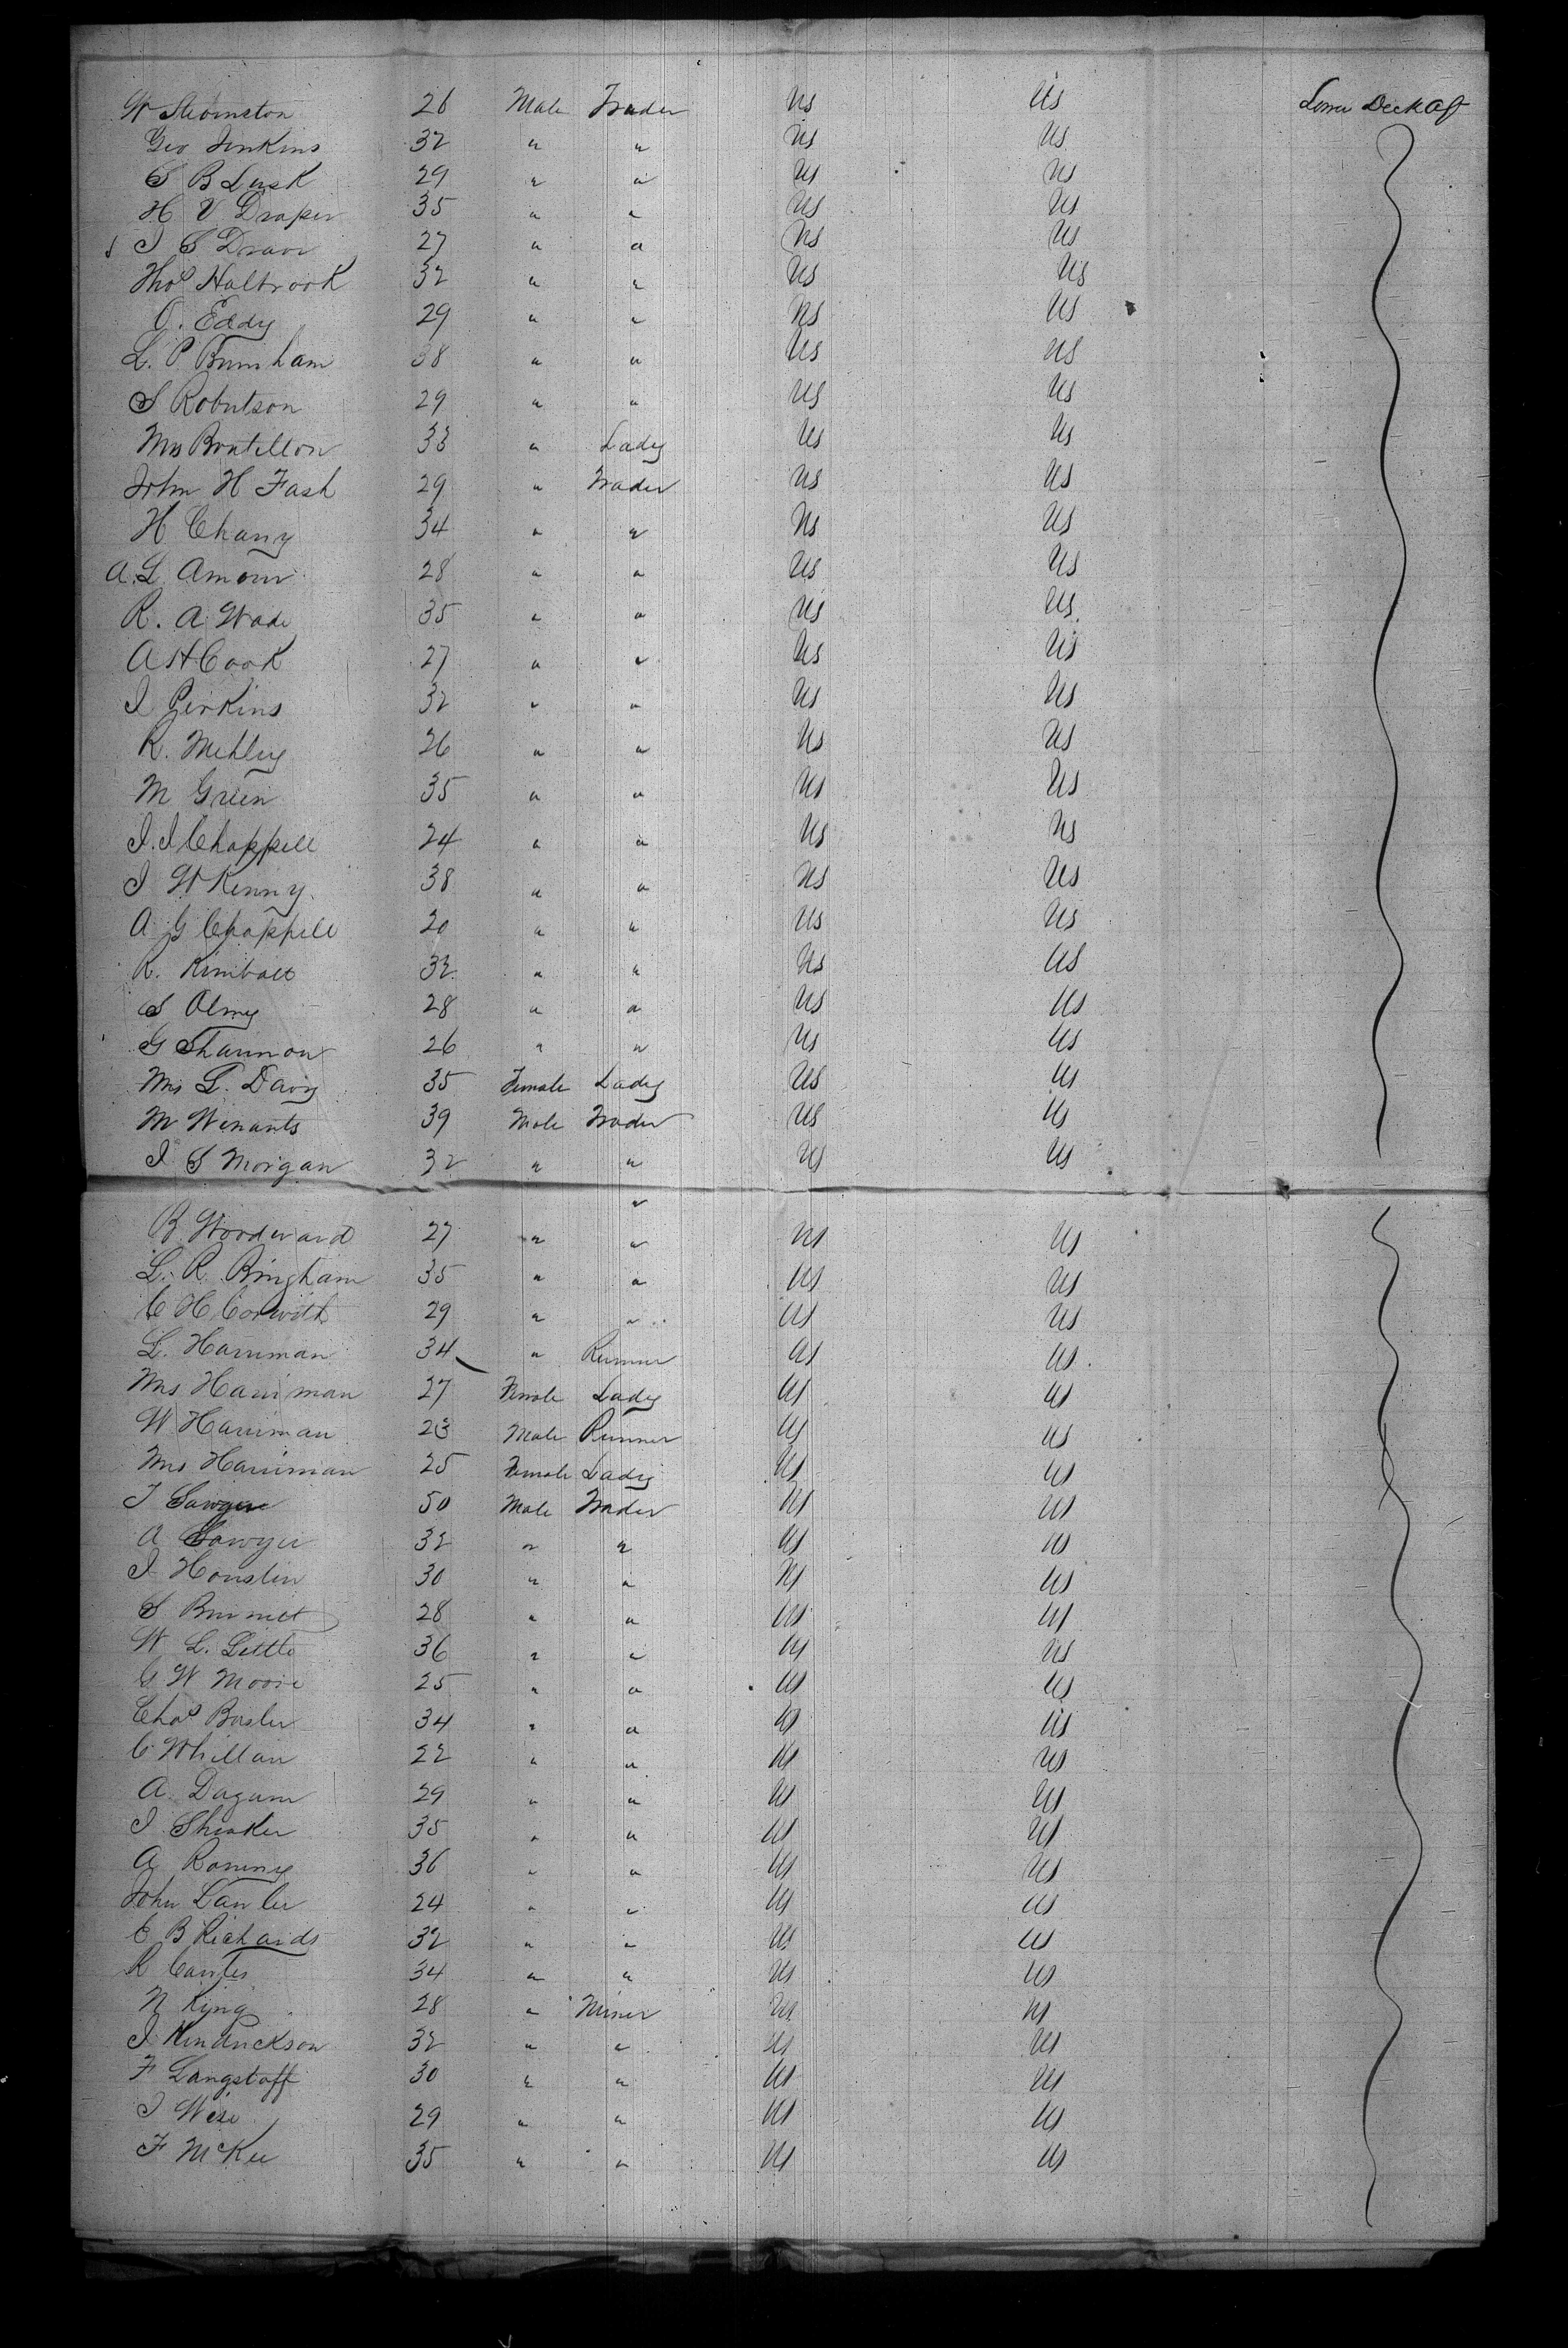 W 26 Male Trader US US Lower Deck Aft
Geo Jenkins 32 " " US US
S B Lusk 29 " " US US
H V Draper 35 " " US US
I S 27 " " US US
Thos Holbrook 32 " " US US
O. Eddy 29 " " US US
L. P. Burnham 38 " " US US
S Robutson 29 " " US US
Mrs 33 " Lady US US
John H Fash 29 " Trader US US
H Chany 34 " " US US
A. L. Amour 28 " " US US
R. A. Wade 35 " " US US
A H Cook 27 " " US US
I Perkins 32 " " US US
R. 26 " " US US
M Green 35 " " US US
I. I Chappell 24 " " US US
I W Kenny. 38 " " US US
A G Chappell 20 " " US US
R. Kimball 32 " " US US
S Olmy 28 " " US US
G Shannon 26 " " US US
Mrs L. Davy 35 Female Lady US US
M Winants 39 Male Trader US US
I S Morgan 32 " " US US
"
B Woodward 27 " " US US
L. R. Bingham 35 " " US US
C H Corwith 29 " " US US
L. Harriman 34 " Runner US US
Mrs Harriman 27 Female Lady US US
W Harriman 23 Male Runner US US
Mrs Harriman 25 Female Lady US US
T Sawyer 50 Male Trader US US
A Sawyer 32 " " US US
I Houslin 30 " " US US
S Burnett 28 " " US US
W L. Little 36 " " US US
G W Moore 25 " " US US
Chas Basler 34 " " US US
C Whillan 22 " " US US
A. Dagam 29 " " US US
I Shinker 35 " " US US
A Romny 36 " " US US
John Lawler 24 " " US US
C B Richards 32 " " US US
R Canter 34 " " US US
N King 28 " Miner US US
I Hendrickson 32 " " US US
F Langstaff 30 " " US US
I Wise 29 " " US US
F McKee 35 " " US US